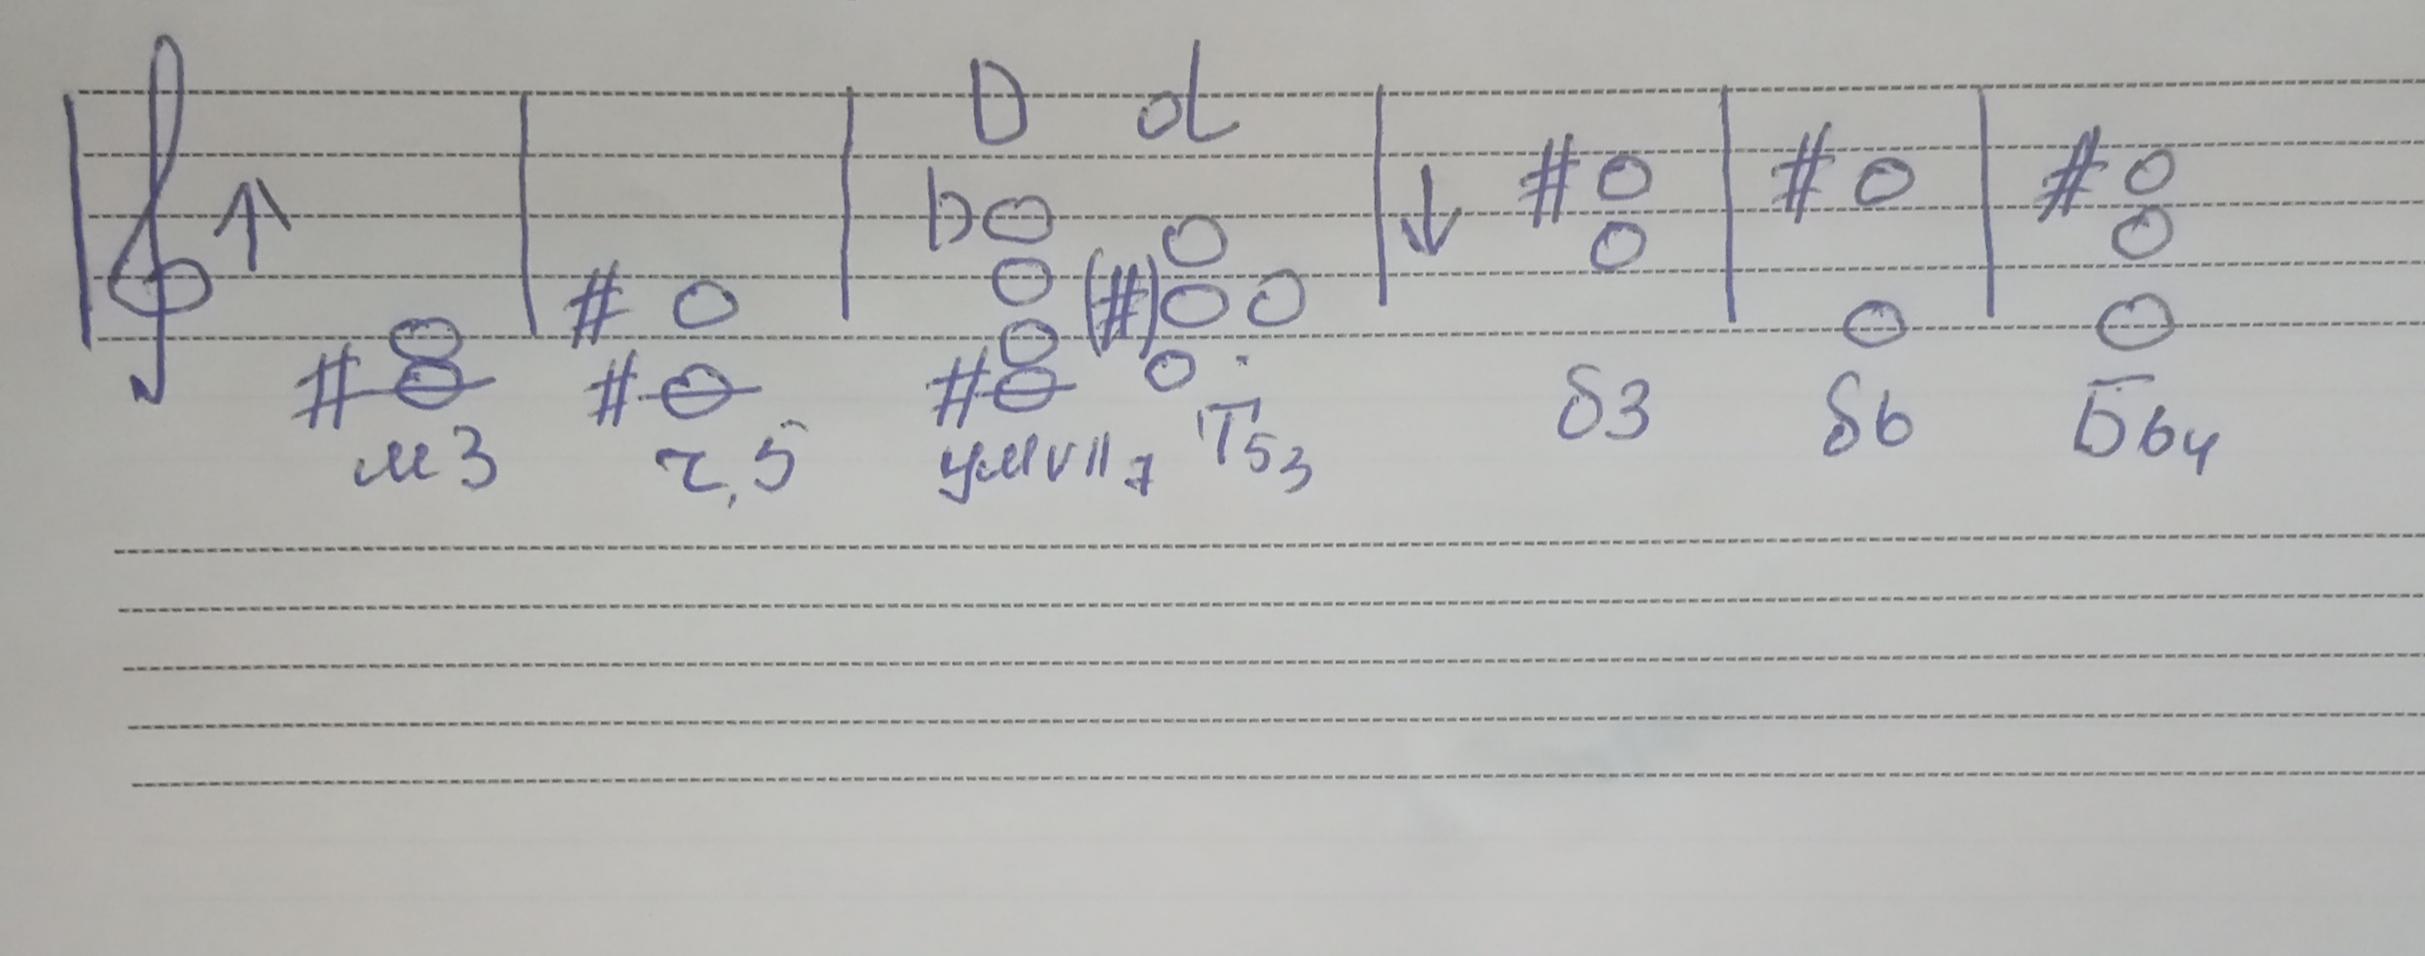 D d
м3 ч.5 умVII7 T53 б3 б6 Б64